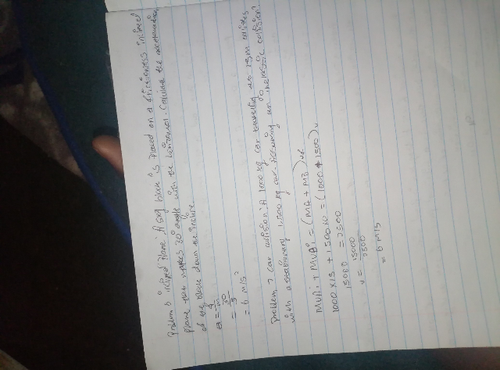 Problem 6 inclined plane. A 5kg block is placed on a frictionless inclined
plane that makes 30 angle with the horizontal. Calculate the acceleration
of the block down the incline
= 6 m/s²
Problem 7 car collision: A 1000 kg car traveling at 15m/s collides
with a stationary 1,500 kg car. Assuming an inelastic collision
MVAi + MVBi = (MA + MB)vf
1000 x 15 + 1500 x 0 = (1000 + 1500)v
15000 = 2500
v = 15000
2500
= 6 m/s